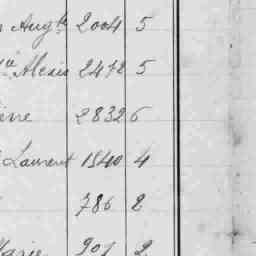 Augte 2004 5
Alexis 2472 5
ène 2832 6
Laurent 1540 4
786 2
Marie 901 2